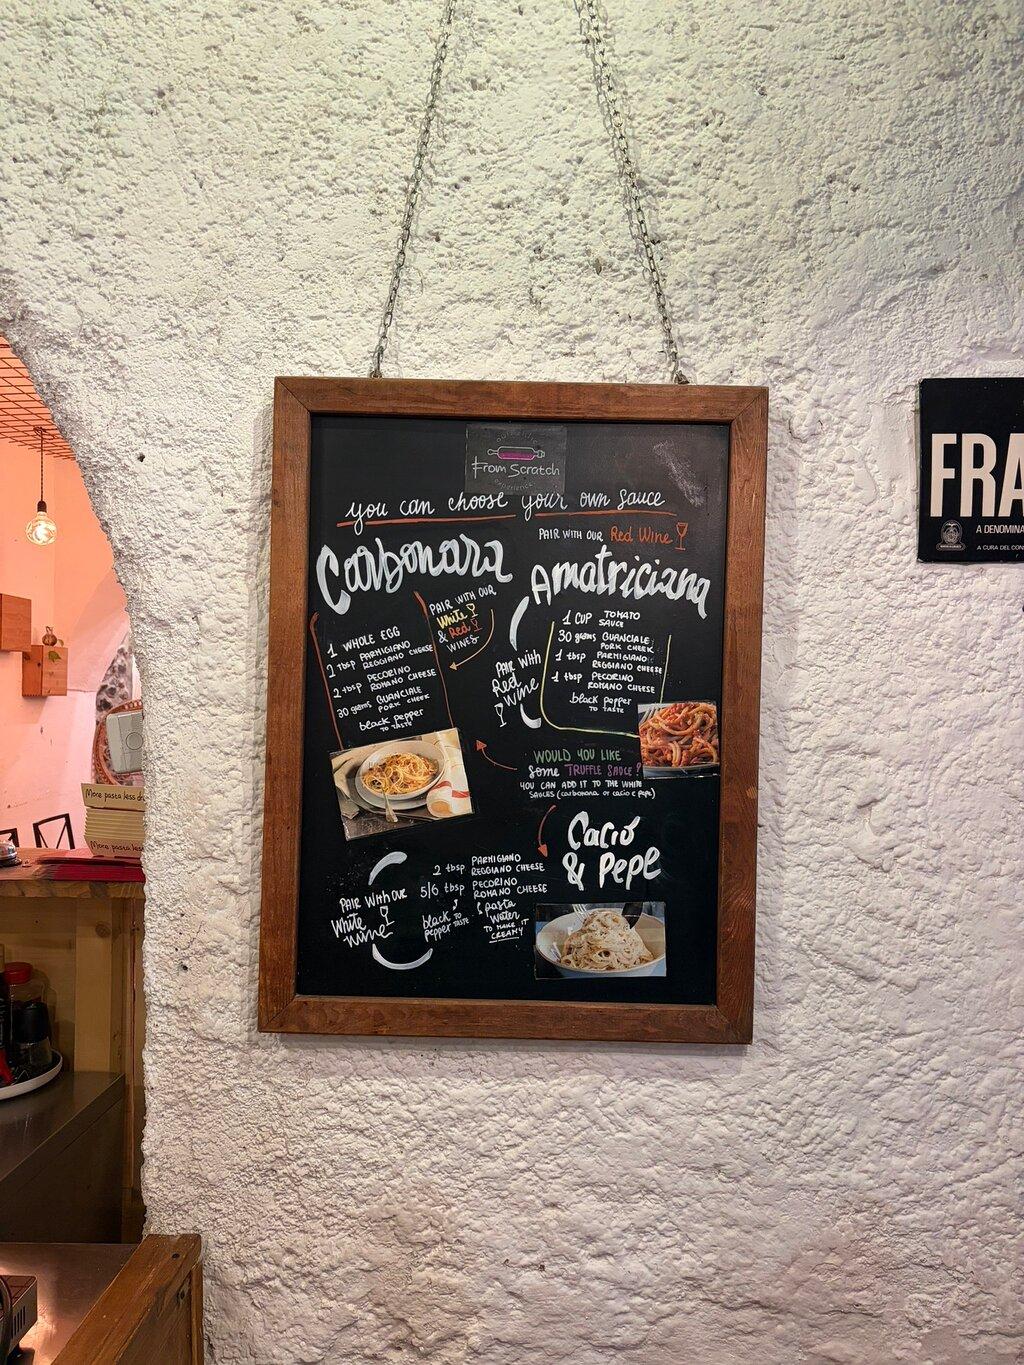 From Scratch
experience
you can choose your own sauce
Carbonara
PAIR WITH OUR
White
& Red
WINES
1 WHOLE EGG
2 tbsp PARMIGIANO
REGGIANO CHEESE
2 tbsp PECORINO
ROMANO CHEESE
30 grams GUANCIALE
PORK CHEEK
black pepper
TO TASTE
PAIR WITH OUR Red Wine
Amatriciana
1 CUP TOMATO
SAUCE
30 grams GUANCIALE
PORK CHEEK
1 tbsp PARMIGIANO
REGGIANO CHEESE
1 tbsp PECORINO
ROMANO CHEESE
black pepper
TO TASTE
PAIR WITH
Red
Wine
WOULD YOU LIKE
some TRUFFLE SAUCE?
YOU CAN ADD IT TO THE WHITE
SAUCES (carbonara or cacio e pepe)
Cació
& Pepe
2 tbsp PARMIGIANO
REGGIANO CHEESE
5/6 tbsp PECORINO
ROMANO CHEESE
black TO
pepper TASTE
& pasta
water
TO MAKE IT
CREAMY
PAIR WITH OUR
White
Wine
FRA
A DENOMINA
A CURA DEL CONS
More pasta less dr
More pasta less